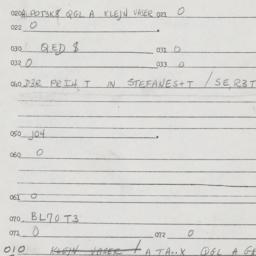 020 ALPOTSK8 QGL A KLEJN VASER 021 0
022 0
030 QED 8 031 0
032 0 033 0
040 D3R PRIH,T IN STEFANES+T / SE,R3T
050 J04
060 0
061 0
070 BL70T3
071 0 072 0
010 KLEJN VASER / A TA..X QGL A